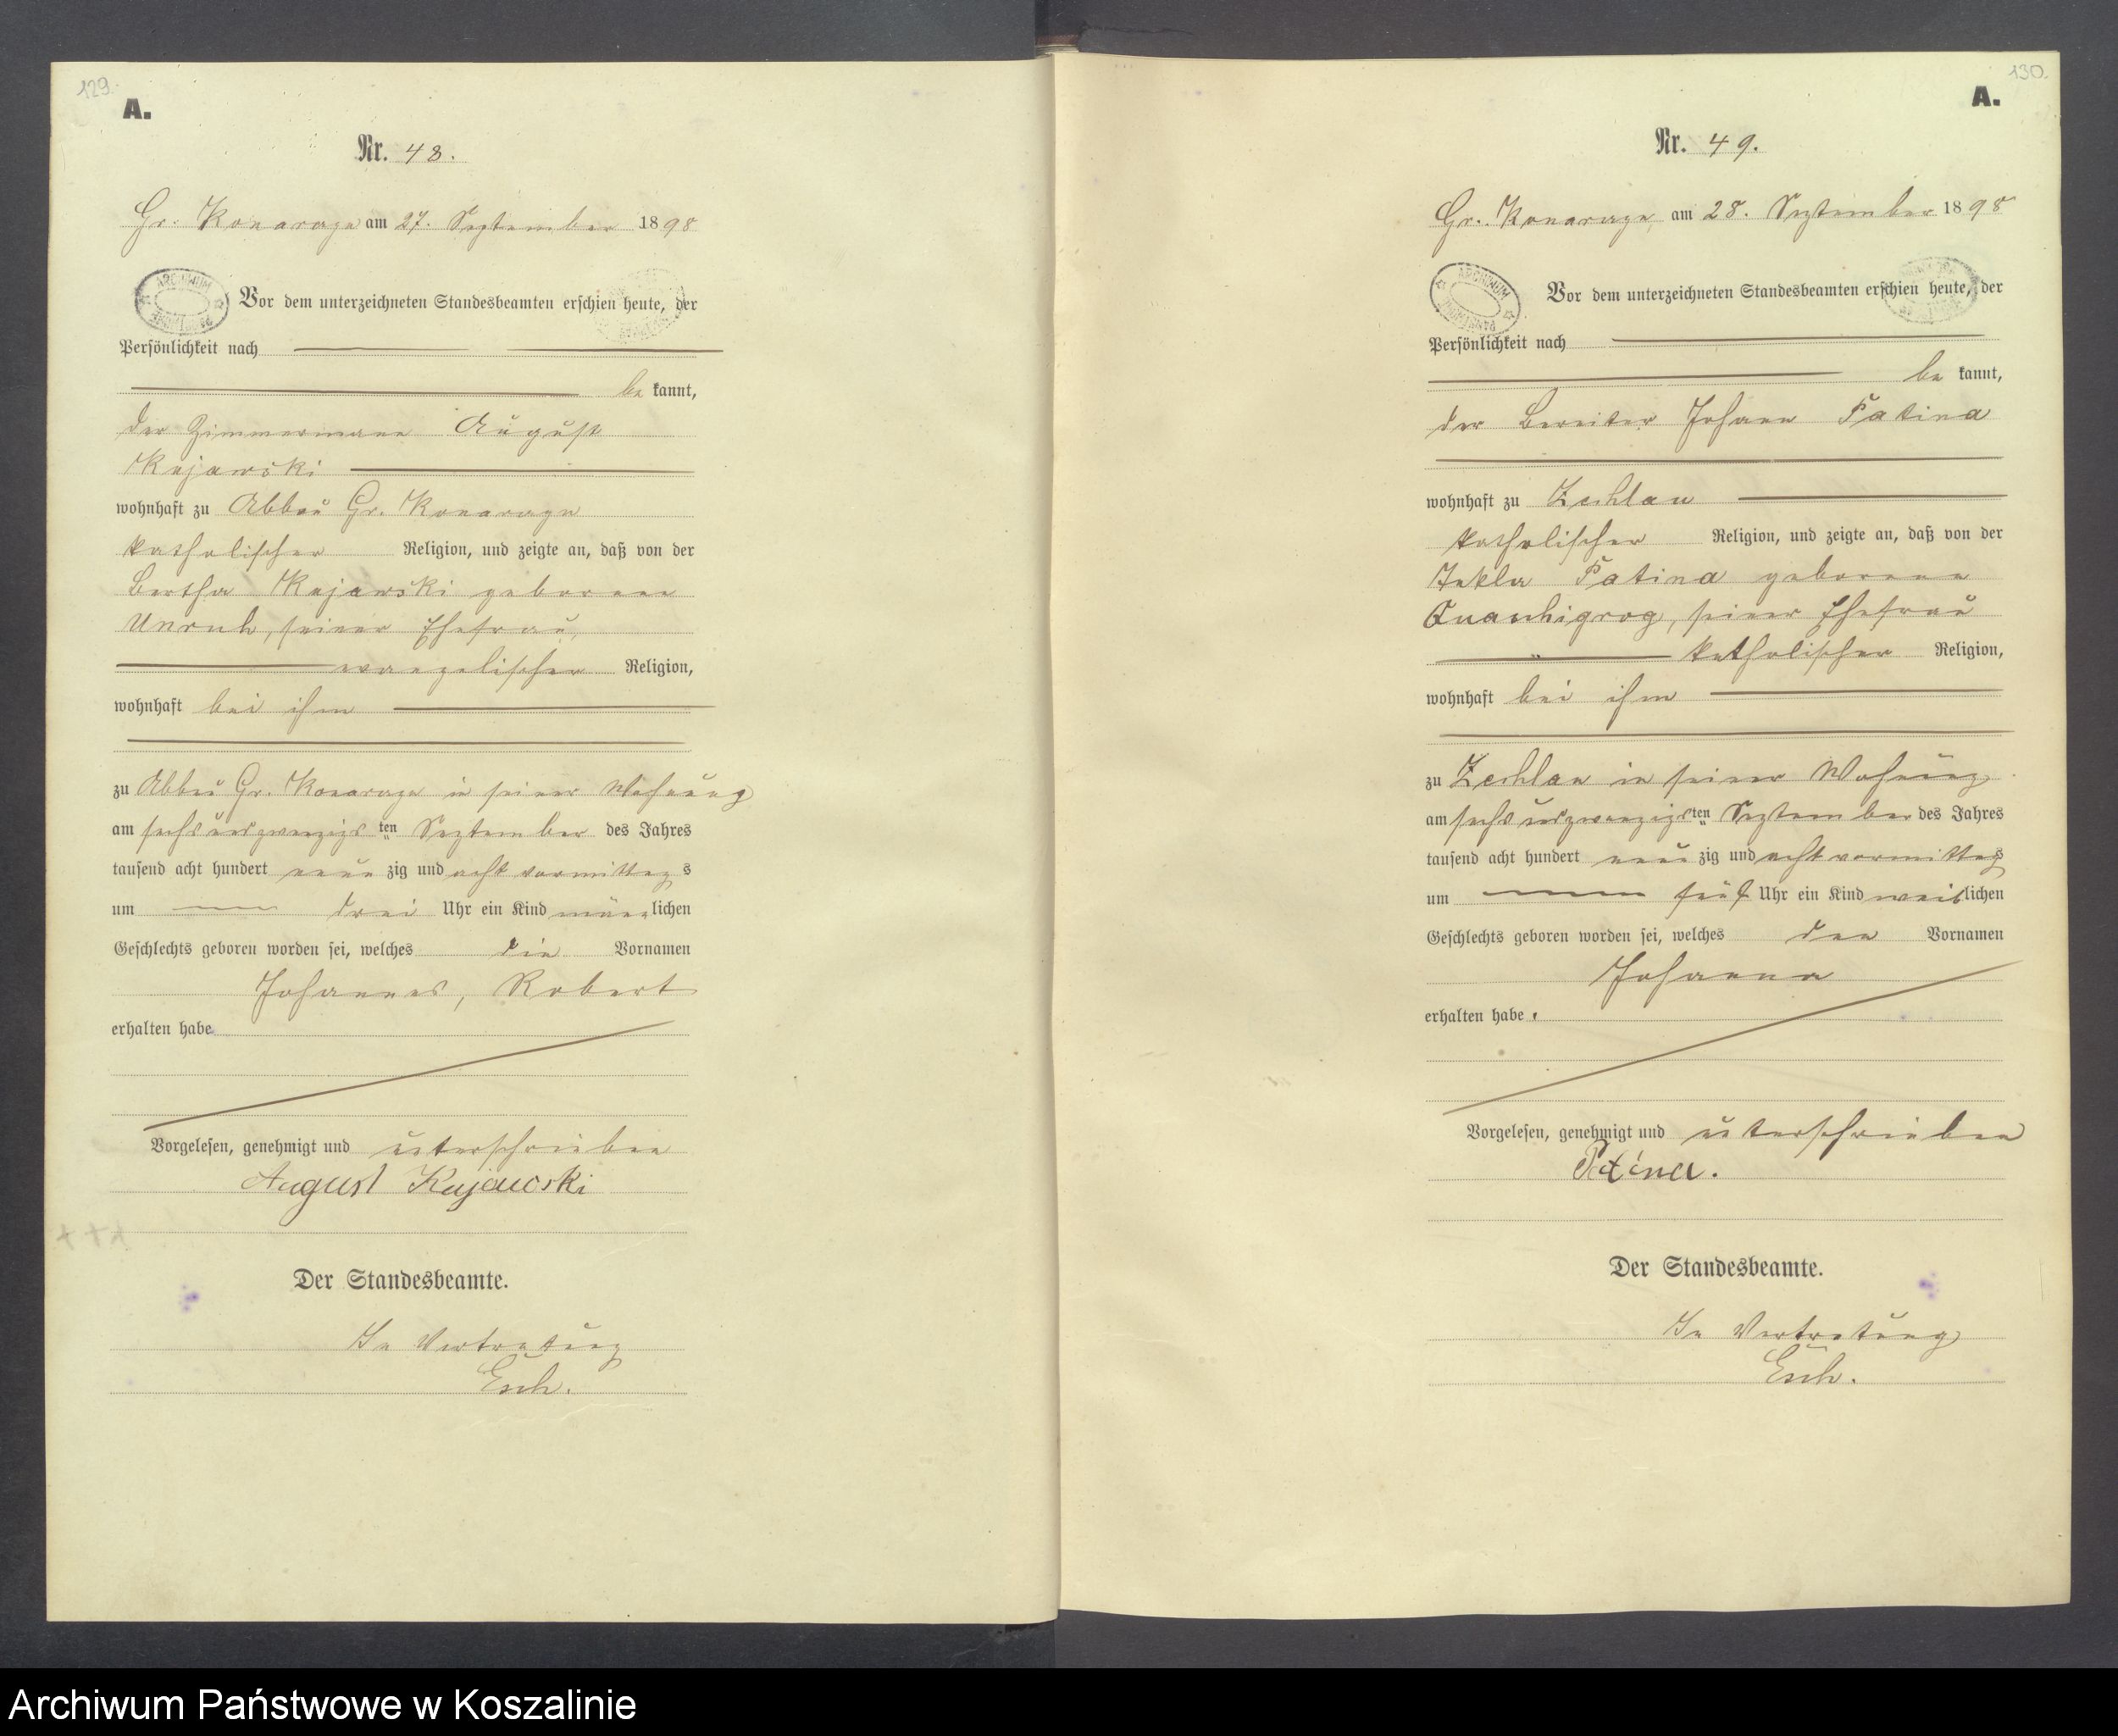 129.
A.
Nr. 48.
Gr. Konarzyn am 27. September 1898
Vor dem unterzeichneten Standesbeamten erschien heute, der
Persönlichkeit nach
be kannt,
der Zimmermann August
Kujawski
wohnhaft zu Abbau Gr. Konarzyn
katholischer Religion, und zeigte an, daß von der
Bertha Kujawski geborene
Unruh, seiner Ehefrau,
evangelischer Religion,
wohnhaft bei ihm
zu Abbau Gr. Konarzyn in seiner Wohnung
am sechsundzwanzigsten September des Jahres
tausend acht hundert neunzig und acht vormittags
um drei Uhr ein Kind männlichen
Geschlechts geboren worden sei, welches die Vornamen
Johannes, Robert
erhalten habe
Vorgelesen, genehmigt und unterschrieben
August Kujawski
Der Standesbeamte.
In Vertretung
Esch.
130.
A.
Nr. 49.
Gr. Konarzyn, am 28. September 1898
ARCHIWUM
Vor dem unterzeichneten Standesbeamten erschien heute, der
Persönlichkeit nach
be kannt,
der Johann Patina
wohnhaft zu Zechlau
katholischer Religion, und zeigte an, daß von der
Tekla Patina geborene
seiner Ehefrau
katholischer Religion,
wohnhaft bei ihm
zu Zechlau in seiner Wohnung
am sechsundzwanzigsten September des Jahres
tausend acht hundert neunzig und acht vormittags
um fünf Uhr ein Kind weiblichen
Geschlechts geboren worden sei, welches den Vornamen
Johanna
erhalten habe.
Vorgelesen, genehmigt und unterschrieben
Patina.
Der Standesbeamte.
In Vertretung
Esch.
Archiwum Państwowe w Koszalinie